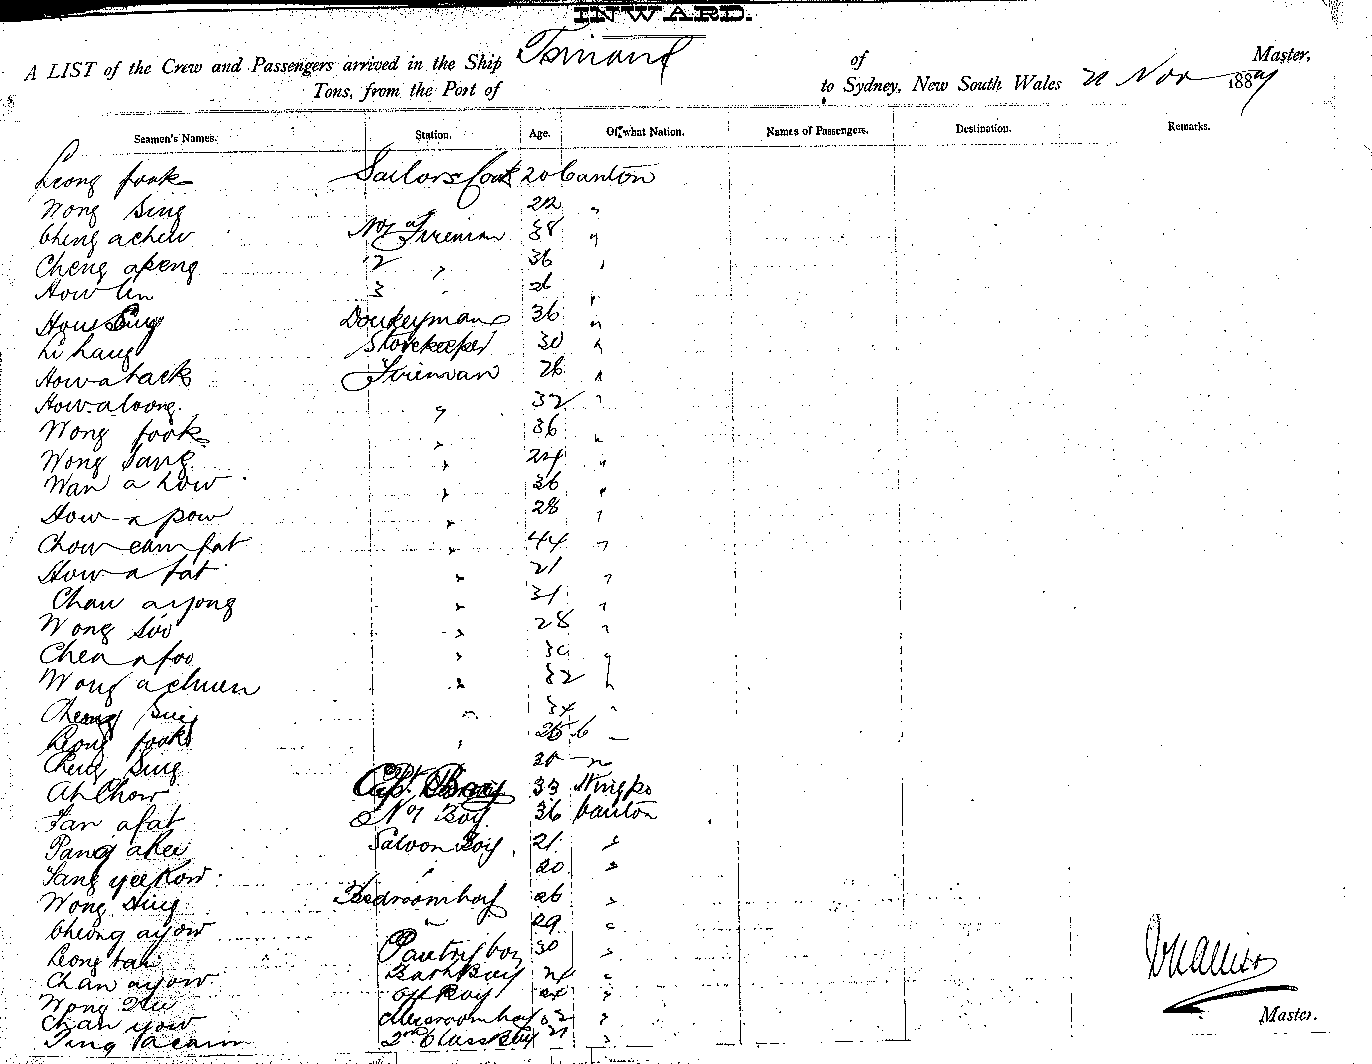 INWARD.
A LIST of the Crew and Passengers arrived in the Ship Tsinan of Master,
Tons, from the Port of to Sydney, New South Wales 21 Nov 1887
Seamen's Names. Station. Age. Of what Nation. Names of Passengers. Destination. Remarks.
Leong fook Sailors Cook 20 Canton
Wong Sing 22 "
Ching achew No 1 Fireman 38 "
Cheng apeng 2 " 36 "
How lin 3 " 26 "
How Sing Donkeyman 36 "
Li hang Storekeeper 30 "
How a tack Fireman 26 "
How a loong " 32 "
Wong fook " 36 "
Wong Sang " 24 "
Wan a how " 36 "
How a pow " 28 "
Chow cum fat " 44 "
How a fat " 21 "
Chan ayong " 31 "
Wong Soo " 28 "
Chea a foo " 30 "
Wong a chuen " 32 "
Cheong Sing " 34 "
Leong fook " "
Cheng Sing 20 "
Ah Chow Capt. Boy 33 Ningpo
Tan afat No 1 Boy 36 Canton
Pang ahee Saloon Boy 21 "
Yang yee Kow " 20 "
Wong Sing Bedroom boy 26 "
Cheong ayow " 29 "
Leong tai Pantry boy 30 "
Chan ayow Bath Boy 24 "
Wong Off Boy 24 "
Chan yow Messroom boy 32 "
Ting 2nd Class Boy 21 "
Allison
Master.